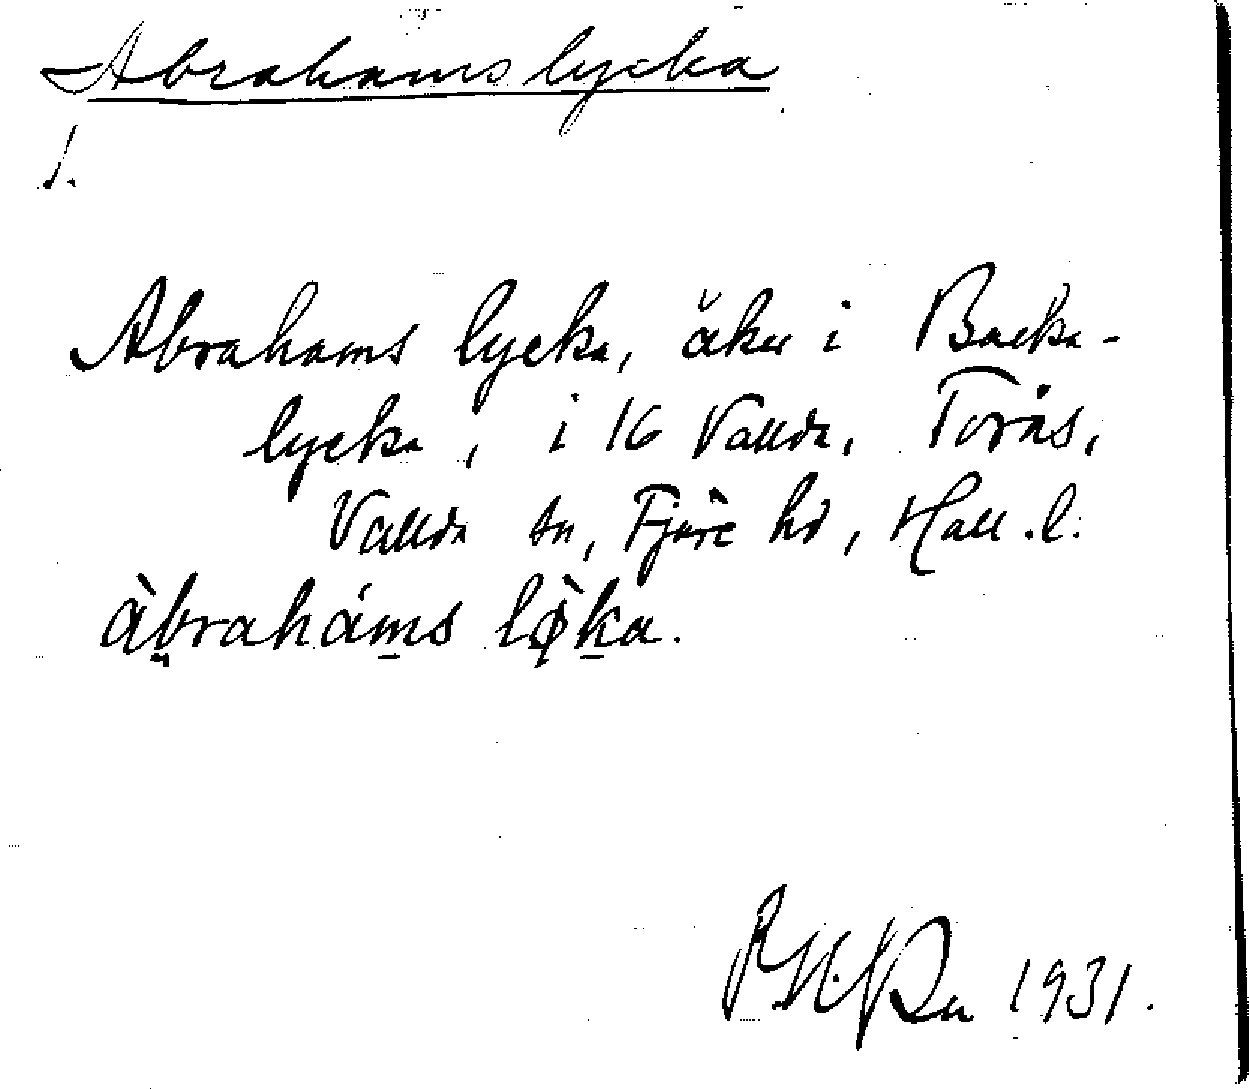 Abrahams lycka
1.
Abrahams lycka, åker i Backa-
lycka, i 16 Vallda, Torås,
Vallda sn, Fjäre hd, Hall. l.
àbraháms lø̀ka.
1931.